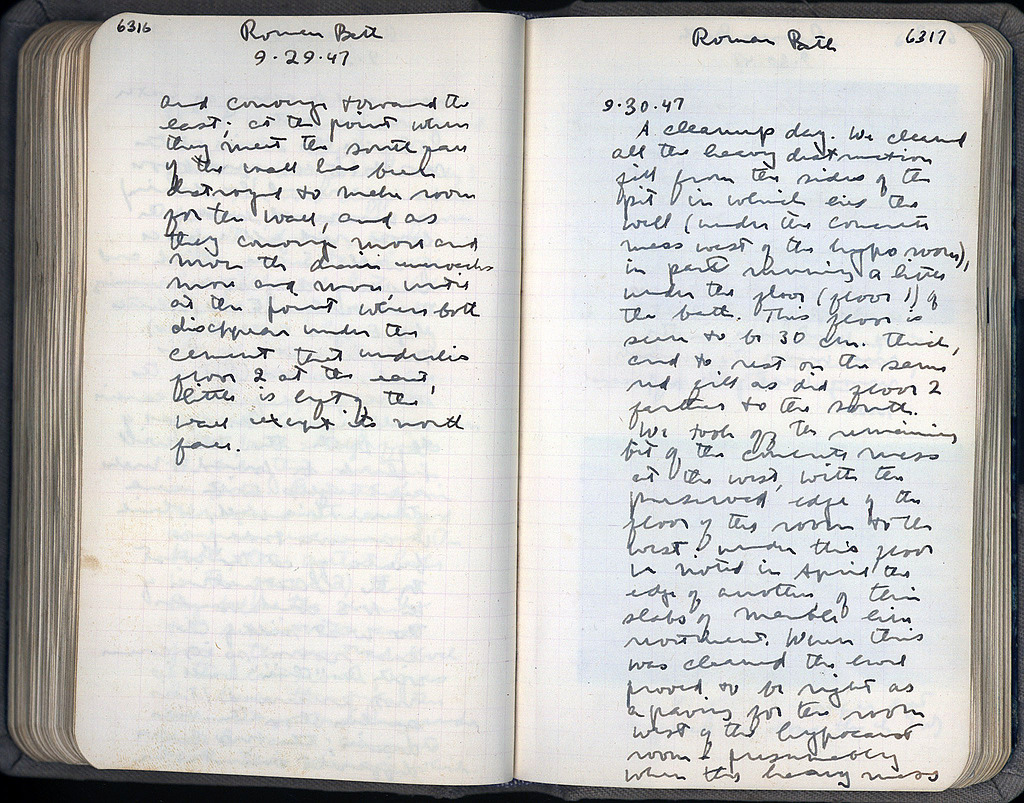 6316
Roman Bath
9.29.47
and converge toward the
east; at the point where
they meet the south face
of the wall has been
destroyed to make room
for the wall, and as
they converge more and
more the drain
more and more, until
at the point where both
disappear under the
cement that underlies
floor 2 at the east,
little is left of the
wall except its north
face.
Roman Bath
6317
9.30.47
A cleanup day. We cleaned
all the heavy destruction
fill from the sides of the
pit in which lies the
well (under the concrete
mess west of the hypo room),
in part running a little
under the floor (floor 1) of
the bath. This floor is
seen to be 30 cm. thick,
and to rest on the same
red fill as did floor 2
farther to the south.
We took off the remaining
bit of the concrete mess
at the west, with the
preserved edge of the
floor of the room to the
west. Under this floor
we noted in April the
edge of another of thin
slabs of marble like
revetment. When this
was cleaned the level
proved to be right as
a paving for the room
west of the hypocaust
room & presumably
when this heavy mess